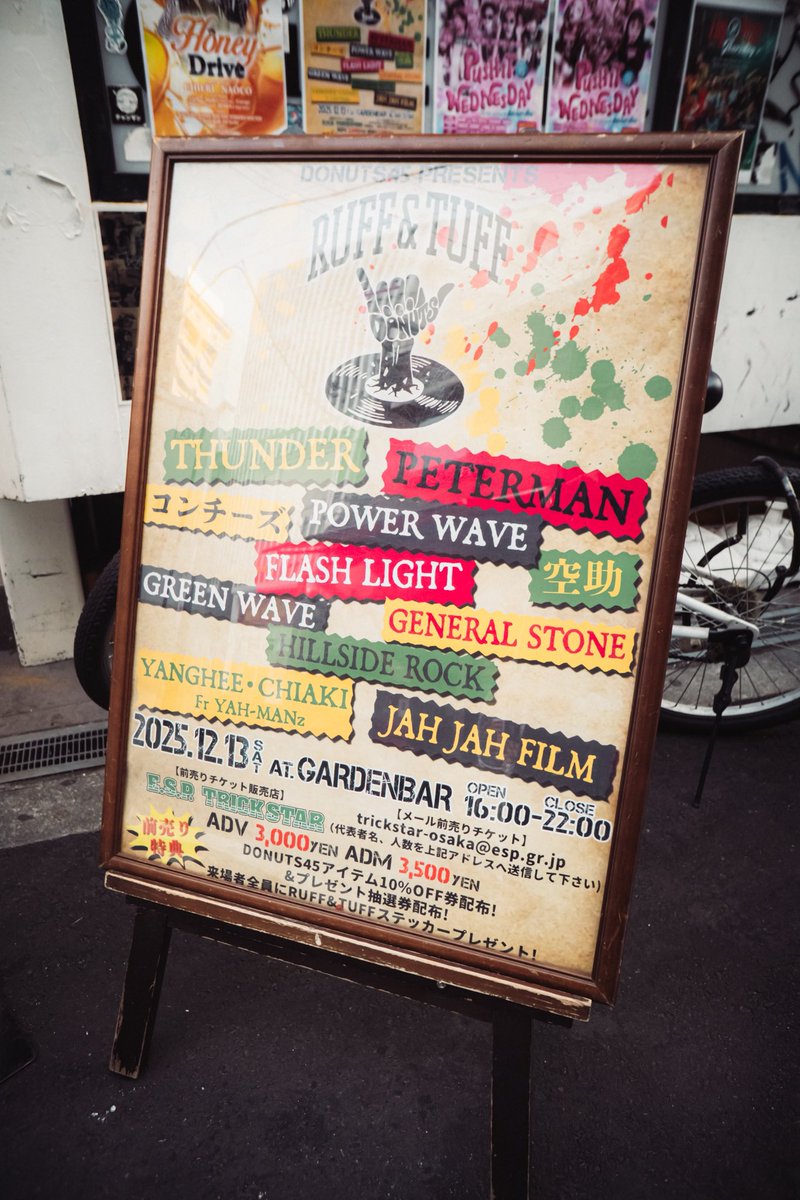 Honey
Drive
THUNDER
PETERMAN
POWER WAVE
FLASH LIGHT
GREEN WAVE
JAH JAH FILM
PUSHIT
WEDNESDAY
PUSHIT
WEDNESDAY
DONUTS45 PRESENTS
RUFF&TUFF
DONUTS
THUNDER
PETERMAN
コンチーズ
POWER WAVE
空助
FLASH LIGHT
GREEN WAVE
GENERAL STONE
HILLSIDE ROCK
YANGHEE・CHIAKI
Fr YAH-MANz
JAH JAH FILM
2025.12.13 SAT AT. GARDENBAR OPEN 16:00-CLOSE 22:00
【前売りチケット販売店】
E.S.P. TRICKSTAR
【メール前売りチケット】
trickstar-osaka@esp.gr.jp
(代表者名、人数を上記アドレスへ送信して下さい)
前売り
特典
ADV 3,000YEN ADM 3,500YEN
DONUTS45アイテム10%OFF券配布!
&プレゼント抽選券配布!
来場者全員にRUFF&TUFFステッカープレゼント!